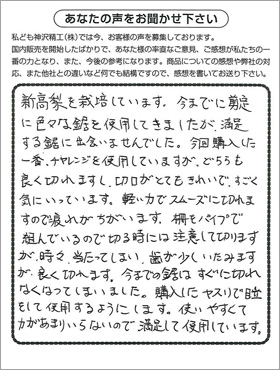 あなたの声をお聞かせ下さい
私ども神沢精工(株)では今、お客様の声を募集しております。
国内販売を開始したばかりで、あなた様の率直なご意見、ご感想が私たちの一
番の力となり、また、今後の参考になります。商品についての感想や弊社の対
応、また他社との違いなど何でも結構ですので、感想を書いてお送り下さい。
新高梨を栽培しています。今までに剪定
に色々な鋸を使用してきましたが、満足
する鋸に出会いませんでした。今回購入した
一番、チャレンジを使用していますが、どちらも
良く切れますし、切口がとてもきれいで、すごく
気にいっています。軽い力でスムーズに切れま
すので疲れがちがいます。棚をパイプで
組んでいるので切る時には注意して切ります
が、時々、当たってしまい、歯が少しいたみます
が、良く切れます。今までの鋸はすぐに切れ
なくなってしまいました。購入したヤスリで目立
をして使用するようにします。使いやすくて
力があまりいらないので満足して使用しています。